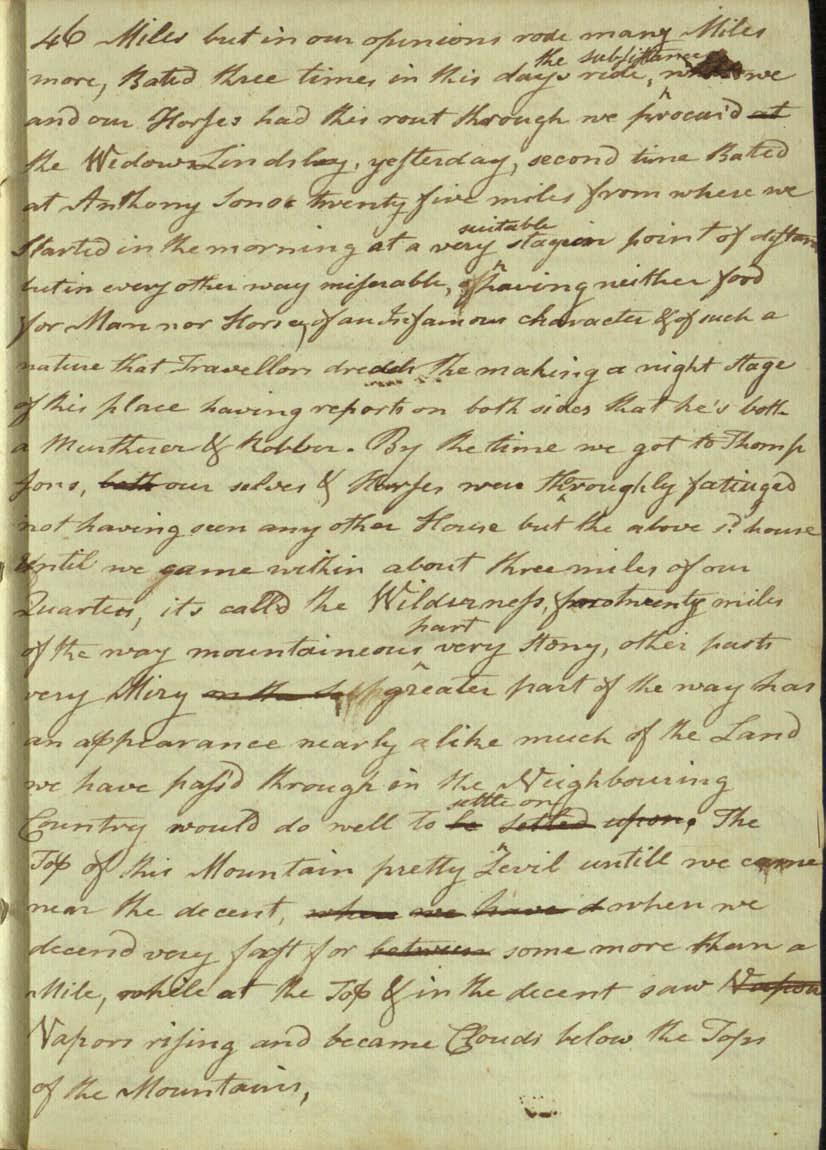 46 Miles but in our opinions rode many Miles
the subsistance
more, Bated three times in this days ride, we
and our Horses had this rout through we procur'd at
the Widow Lindsley, yesterday, second time Bated
at Anthony Sons twenty five miles from where we
suitable
Started in the morning at a very stage in point of distan
but in every other way miserable, having neither food
for Man nor Horse, of an Infamous character & of such a
nature that Travellors the making a night stage
of his place having reports on both sides that he's both
a Murtherer & Robber. By the time we got to Thomp
sons, both our selves & Horses were throughly fatiuged
not having seen any other House but the above sd. house
Until we came within about three miles of our
Quarters, its calld the Wilderness, twenty miles
part
of the way mountaineous very Stony, other parts
very Miry on the greater part of the way has
an appearance nearly alike much of the Land
we have pass'd through in the Neighbouring
settle on
Country would do well to be setled upon. The
Top of this Mountain pretty Levil untill we came
near the decent, where we have d when we
decend very fast for between some more than a
Mile, while at the Top & in the decent saw Vapou
Vapors rising and became Clouds below the Tops
of the Mountains,